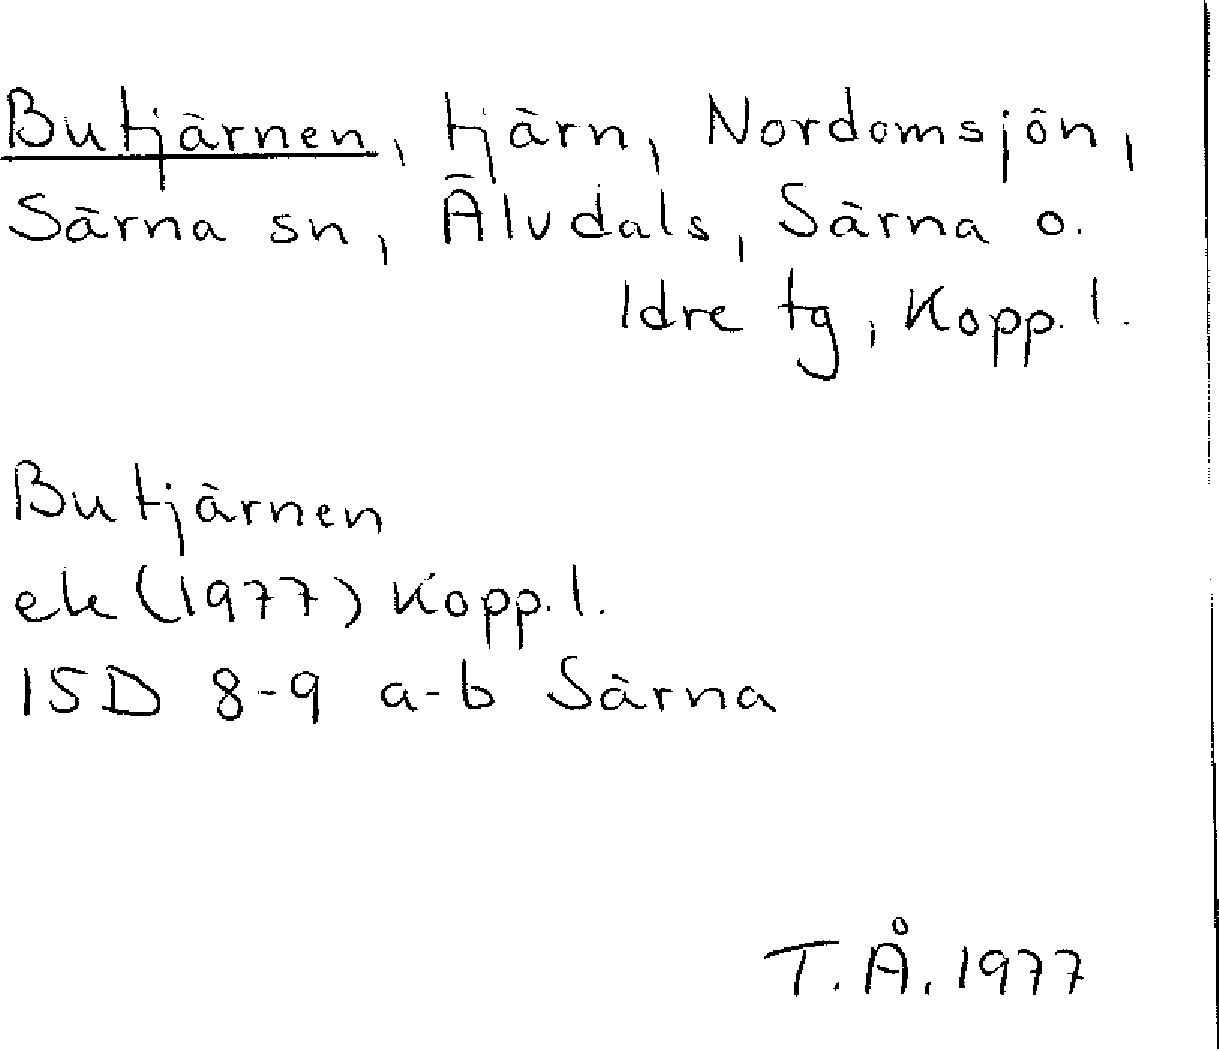 Butjärnen, tjärn, Nordomsjön,
Särna sn, Älvdals, Särna o.
Idre tg, Kopp. l.
Butjärnen
ek (1977) Kopp. l.
15D 8-9 a-b Särna
T. Å. 1977